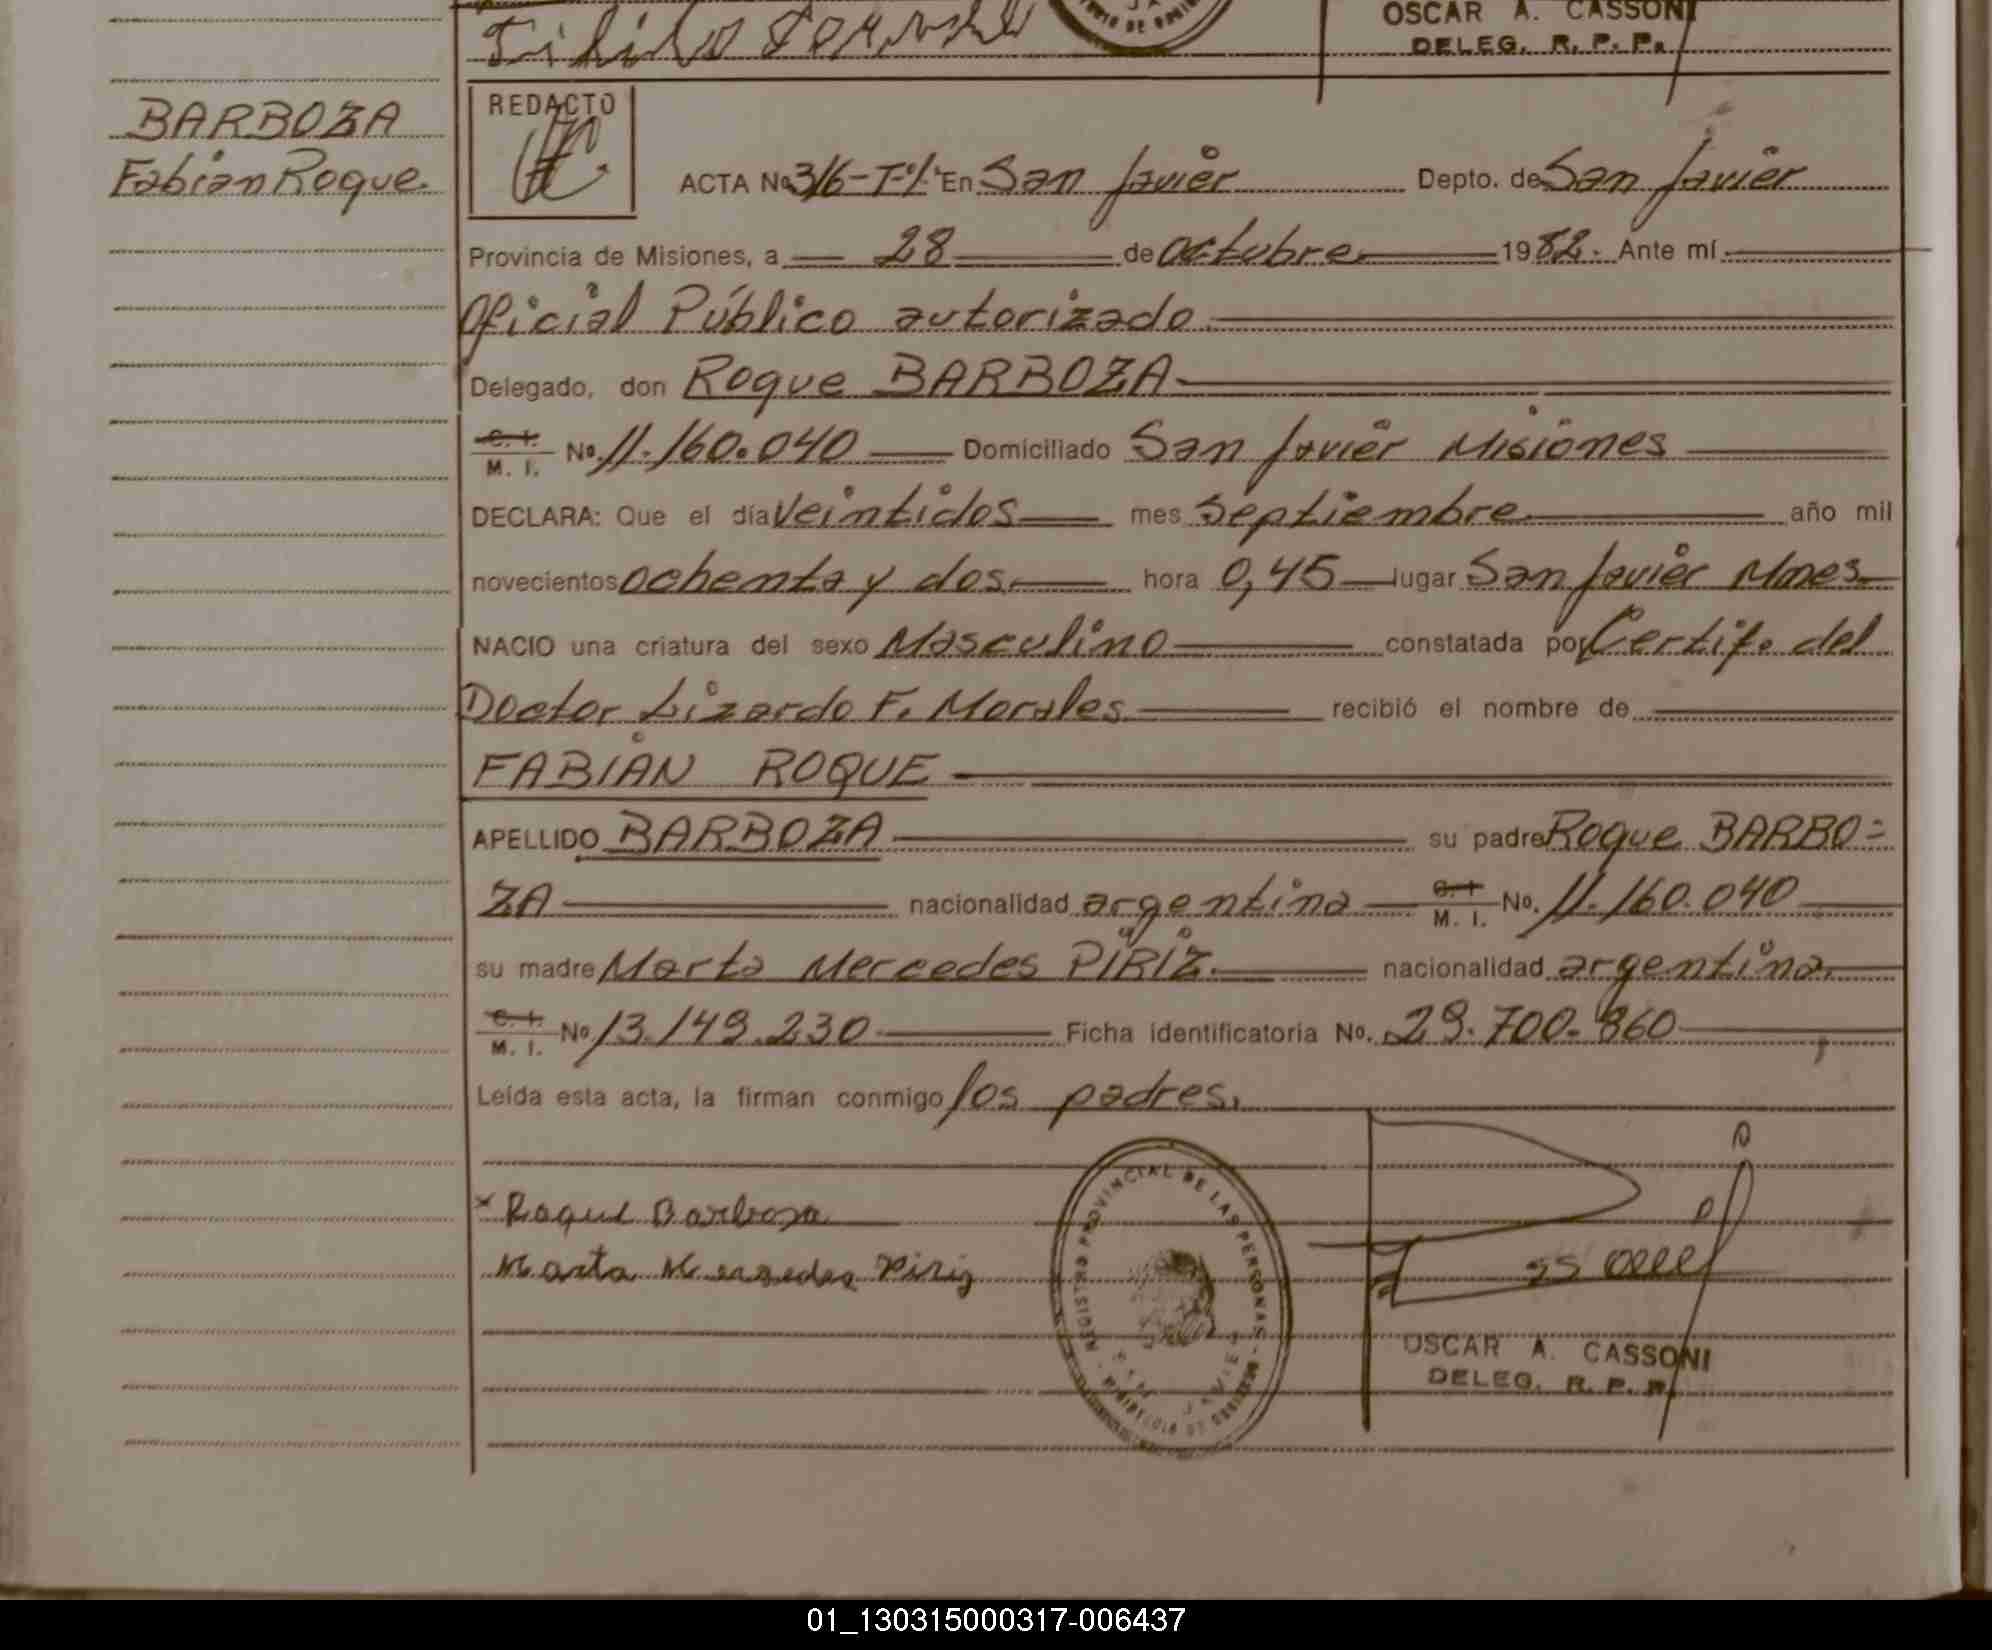 OSCAR A. CASSONI
DELEG. R. P. P.
BARBOZA
Fabian Roque.
REDACTO
ACTA No 316-Tº1. En San Javier Depto. de San Javier
Provincia de Misiones, a 28 de octubre 1982. Ante mí
Oficial Público autorizado
Delegado, don Roque BARBOZA
C. I. M. I. No. 11.160.040 Domiciliado San Javier Misiones
DECLARA: Que el día Veintidos mes Septiembre año mil
novecientos ochenta y dos. hora 0,45 lugar San Javier Mnes
NACIO una criatura del sexo Masculino constatada por Certif. del
Doctor Lizardo F. Morales recibió el nombre de
FABIAN ROQUE
APELLIDO BARBOZA su padre Roque BARBO=
ZA nacionalidad argentina C. I. M. I. No. 11.160.040
su madre Marta Mercedes PIRIZ. nacionalidad argentina.
C. I. M. I. No 13.149.230 Ficha identificatoria No. 29.700.860
Leída esta acta, la firman conmigo los padres.
x Roque Barboza
Marta Mersedes Piriz
REGISTRO PROVINCIAL DE LAS PERSONAS - MISIONES
SAN JAVIER
OSCAR A. CASSONI
DELEG. R. P. P.
01_130315000317-006437